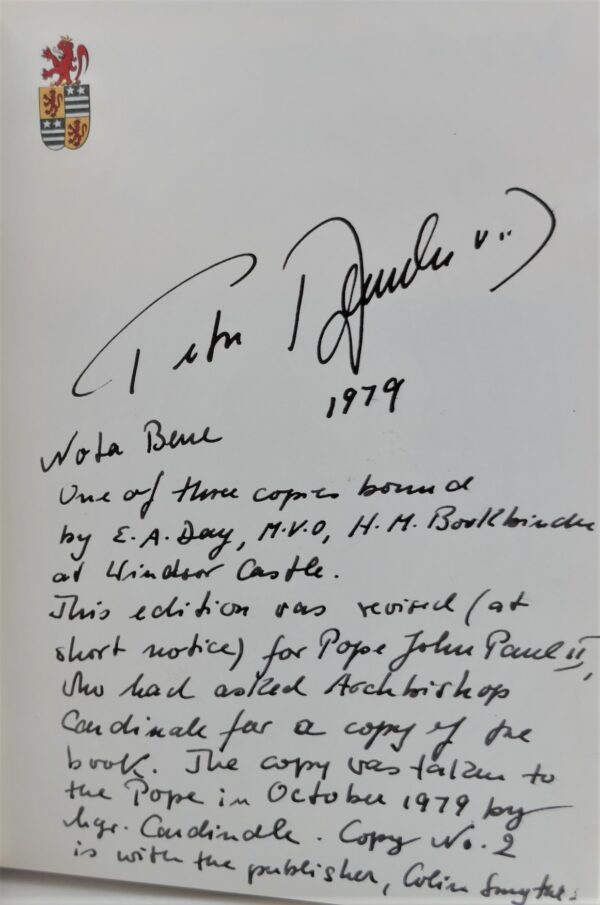 Peter
1979
Nota Bene
One of three copies bound
by E.A. Day, M.V.O, H.M. Bookbinder
at Windsor Castle.
This edition was revised (at
short notice) for Pope John Paul II,
who had asked Archbishop
Cardinale for a copy of the
book. The copy was taken to
the Pope in October 1979 by
Mgr. Cardinale. Copy No. 2
is with the publisher, Colin Smythe.